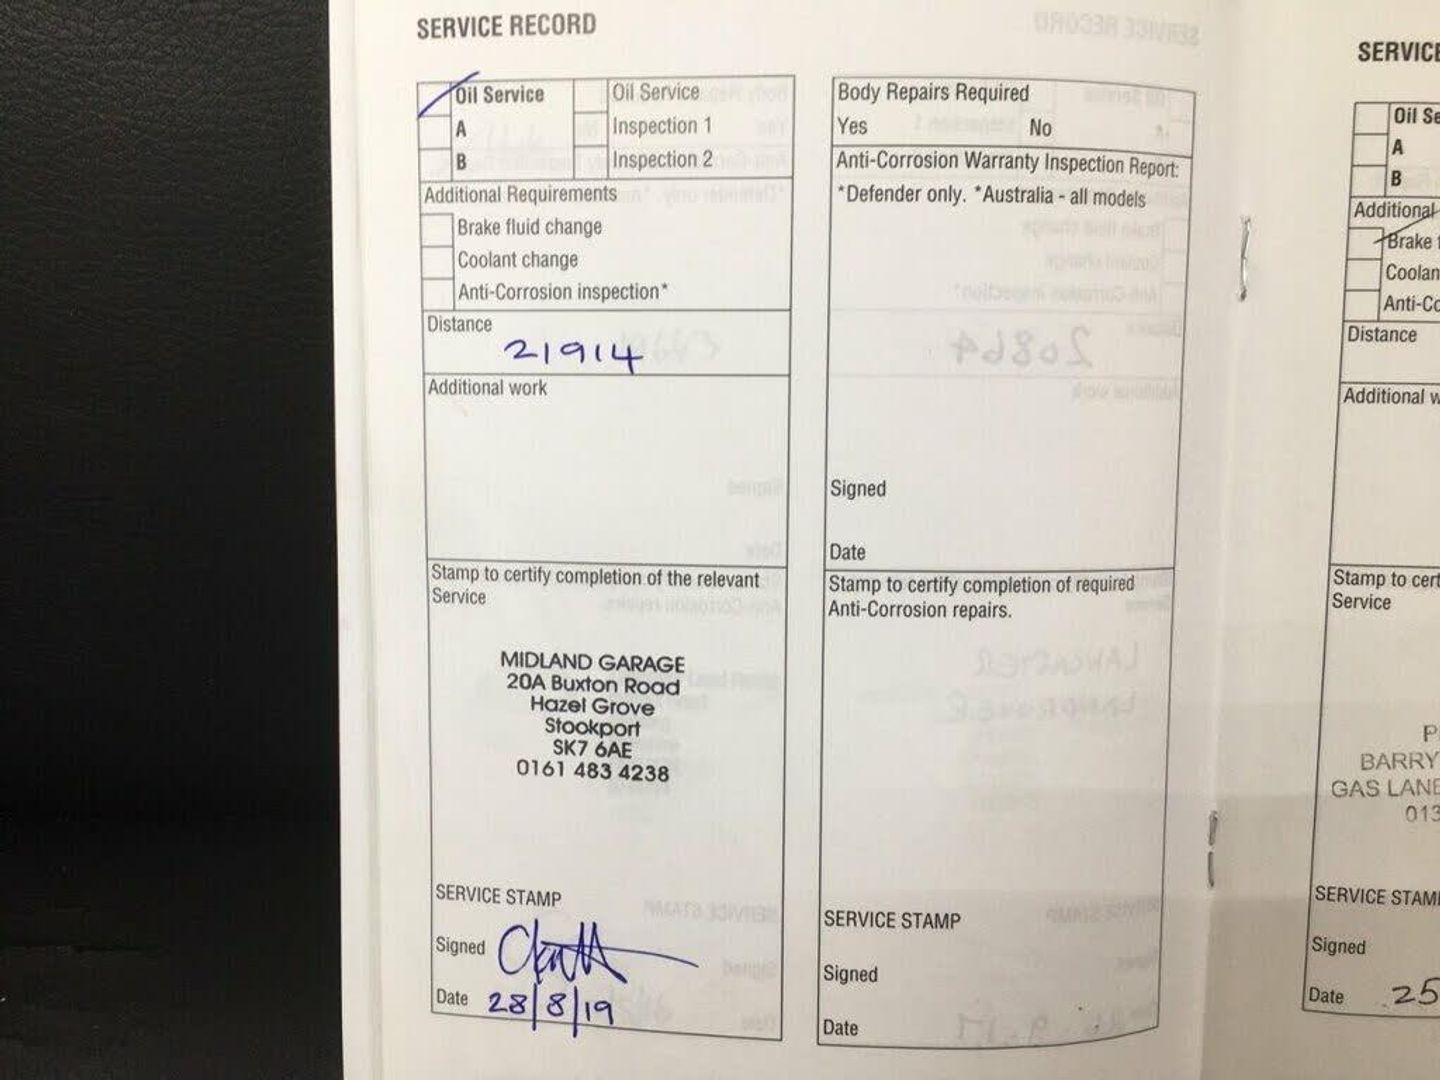 SERVICE RECORD
Oil Service
A
B
Oil Service
Inspection 1
Inspection 2
Additional Requirements
Brake fluid change
Coolant change
Anti-Corrosion inspection*
Distance
21914
Additional work
Stamp to certify completion of the relevant
Service
MIDLAND GARAGE
20A Buxton Road
Hazel Grove
Stookport
SK7 6AE
0161 483 4238
SERVICE STAMP
Signed
Date 28/8/19
Body Repairs Required
Yes No
Anti-Corrosion Warranty Inspection Report:
*Defender only. *Australia - all models
Signed
Date
Stamp to certify completion of required
Anti-Corrosion repairs.
SERVICE STAMP
Signed
Date
SERVICE
Oil Se
A
B
Additional
Brake f
Coolan
Anti-Co
Distance
Additional w
Stamp to cert
Service
P
BARRY
GAS LANE
013
SERVICE STAM
Signed
Date 25